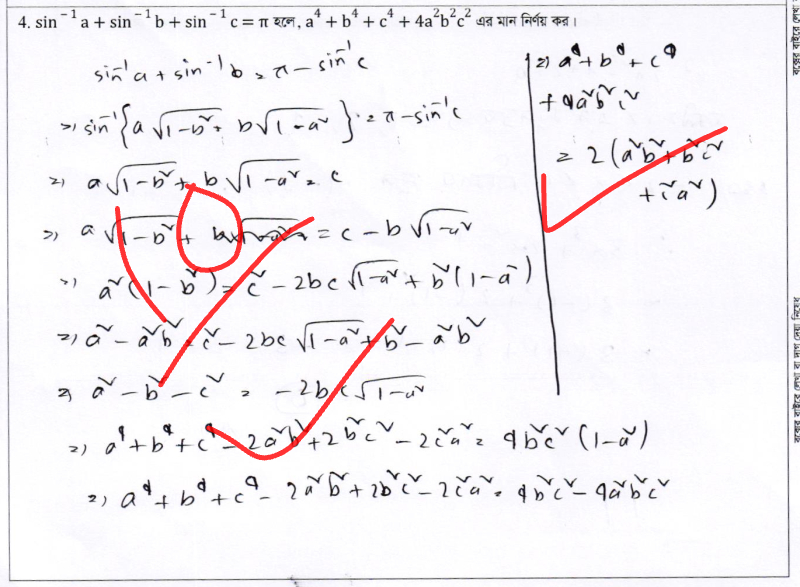 4. sin⁻¹ a + sin⁻¹ b + sin⁻¹ c = π হলে, a⁴ + b⁴ + c⁴ + 4a²b²c² এর মান নির্ণয় কর।
sin⁻¹a + sin⁻¹b = π - sin⁻¹c
⇒ sin⁻¹{a√(1-b²) + b√(1-a²)} = π - sin⁻¹c
⇒ a√(1-b²) + b√(1-a²) = c
⇒ a√(1-b²) = c - b√(1-a²)
⇒ a²(1-b²) = c² - 2bc√(1-a²) + b²(1-a²)
⇒ a² - a²b² = c² - 2bc√(1-a²) + b² - a²b²
⇒ a² - b² - c² = -2bc√(1-a²)
⇒ a⁴ + b⁴ + c⁴ - 2a²b² + 2b²c² - 2c²a² = 4b²c²(1-a²)
⇒ a⁴ + b⁴ + c⁴ - 2a²b² + 2b²c² - 2c²a² = 4b²c² - 4a²b²c²
⇒ a⁴ + b⁴ + c⁴
+ 4a²b²c²
= 2(a²b² + b²c²
+ c²a²)